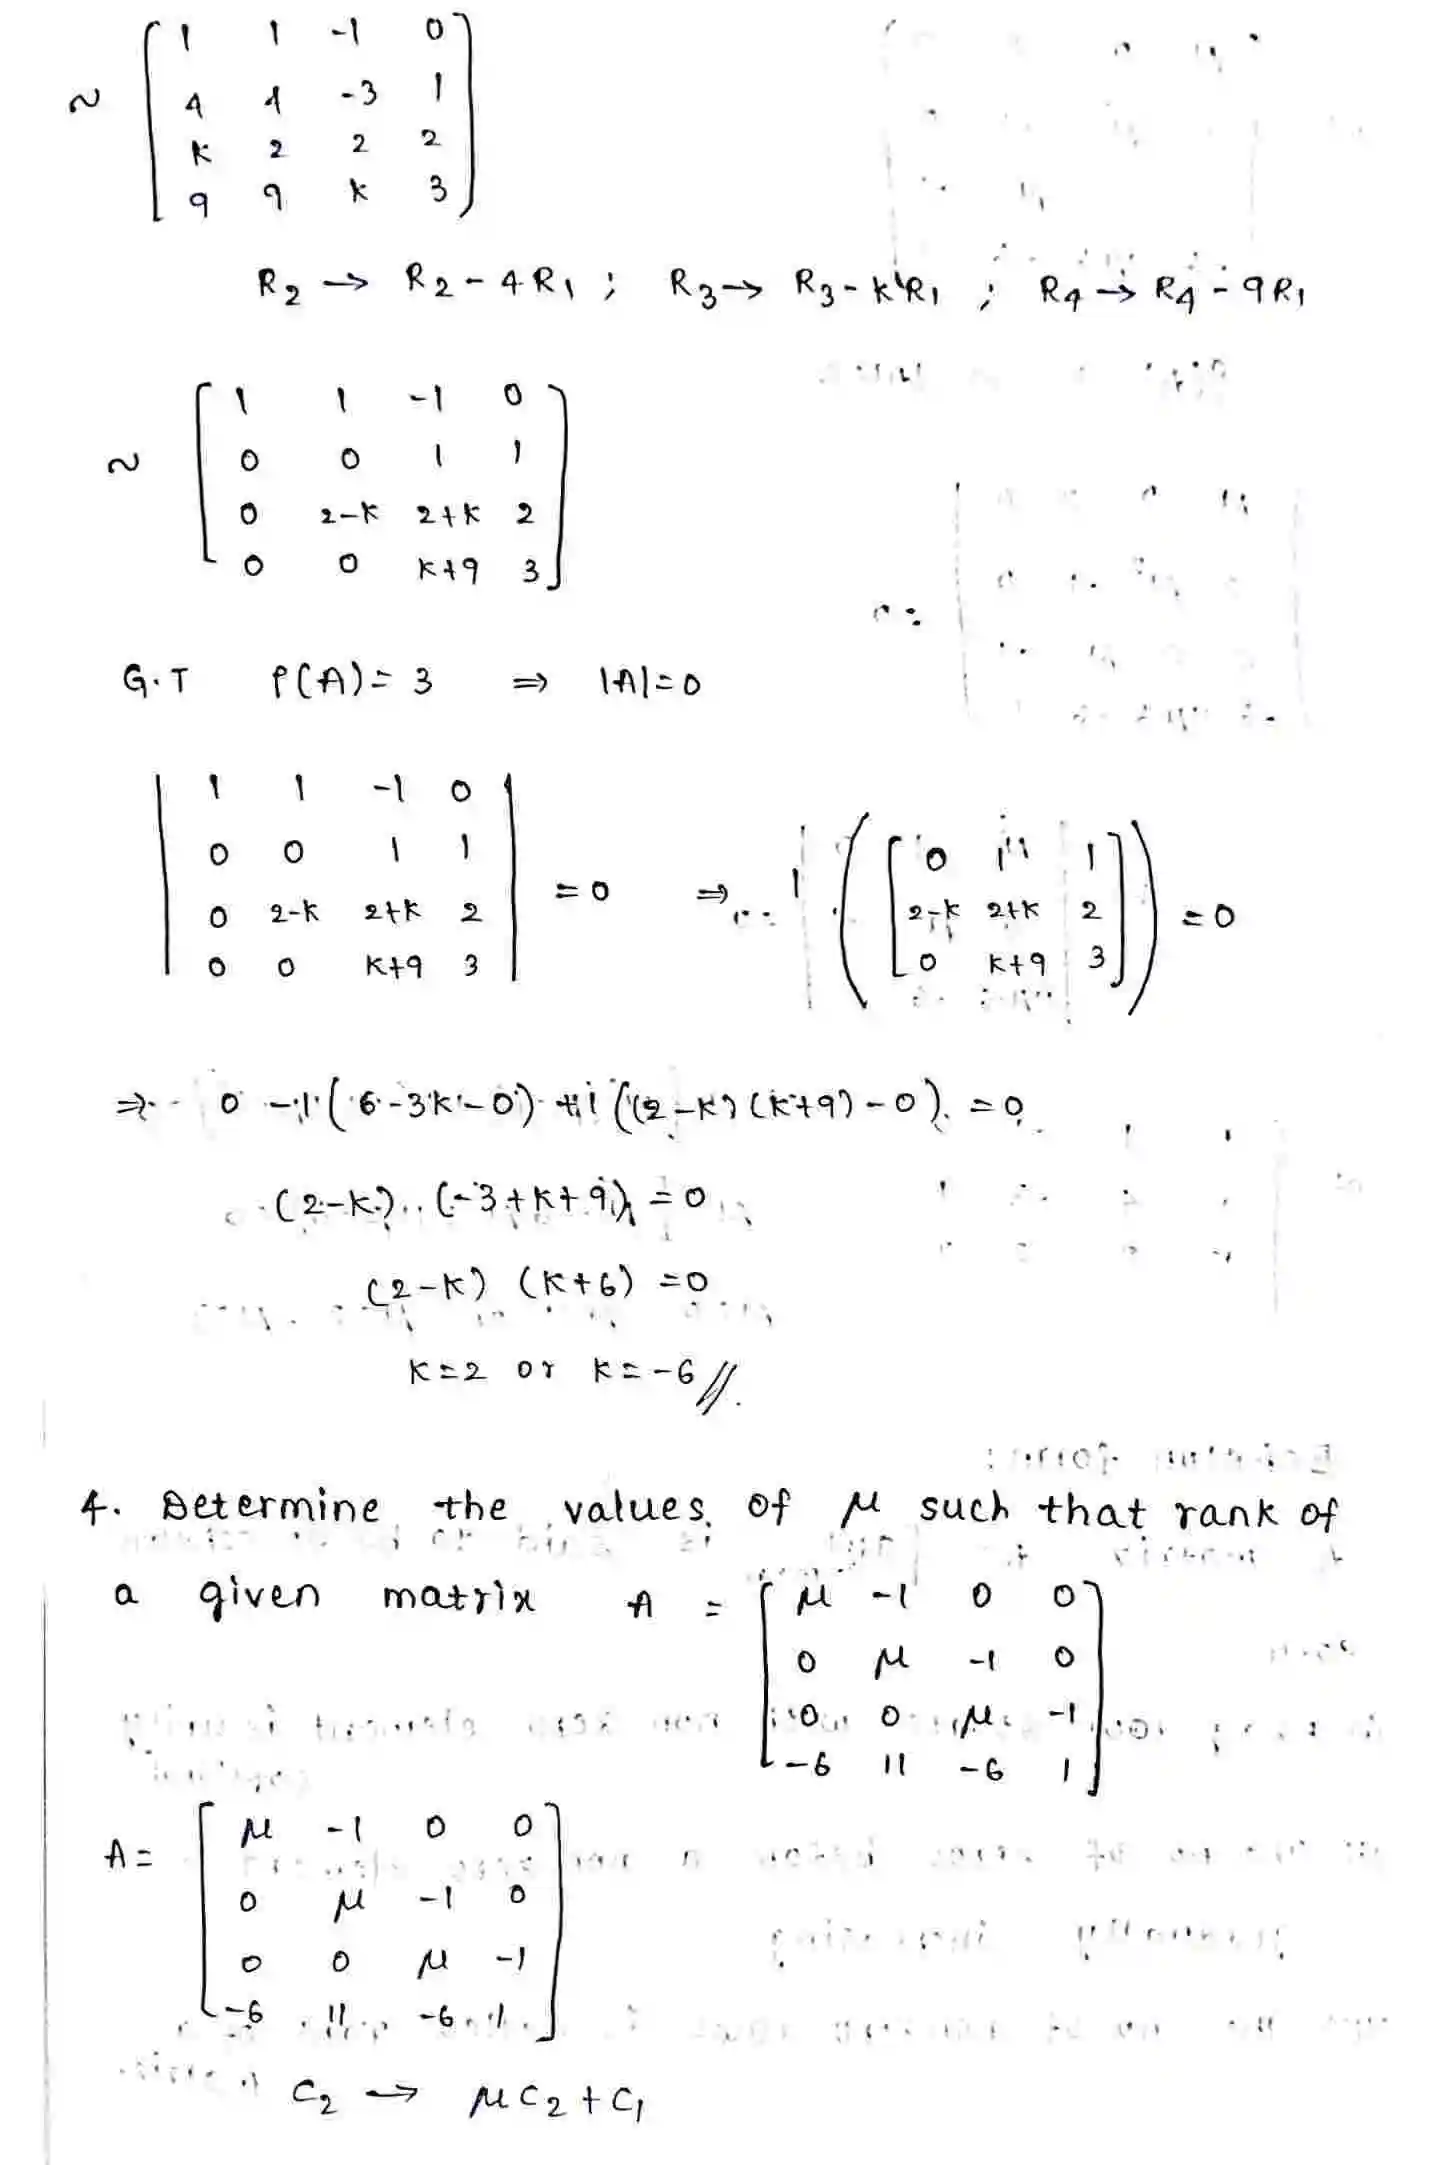 ~ [ 1 1 -1 0
4 4 -3 1
K 2 2 2
9 9 K 3 ]
R2 → R2 - 4R1 ; R3 → R3 - K R1 ; R4 → R4 - 9R1
~ [ 1 1 -1 0
0 0 1 1
0 2-K 2+K 2
0 0 K+9 3 ]
G.T ρ(A) = 3 ⇒ |A| = 0
| 1 1 -1 0
0 0 1 1
0 2-K 2+K 2
0 0 K+9 3 | = 0 ⇒ 1 ( [ 0 1 1
2-K 2+K 2
0 K+9 3 ] ) = 0
⇒ 0 -1 (6-3K-0) +1 ((2-K) (K+9) - 0) = 0
(2-K) (-3+K+9) = 0
(2-K) (K+6) = 0
K=2 or K=-6 //.
4. Determine the values of μ such that rank of
a given matrix A = [ μ -1 0 0
0 μ -1 0
0 0 μ -1
-6 11 -6 1 ]
A = [ μ -1 0 0
0 μ -1 0
0 0 μ -1
-6 11 -6 1 ]
C2 → μC2 + C1